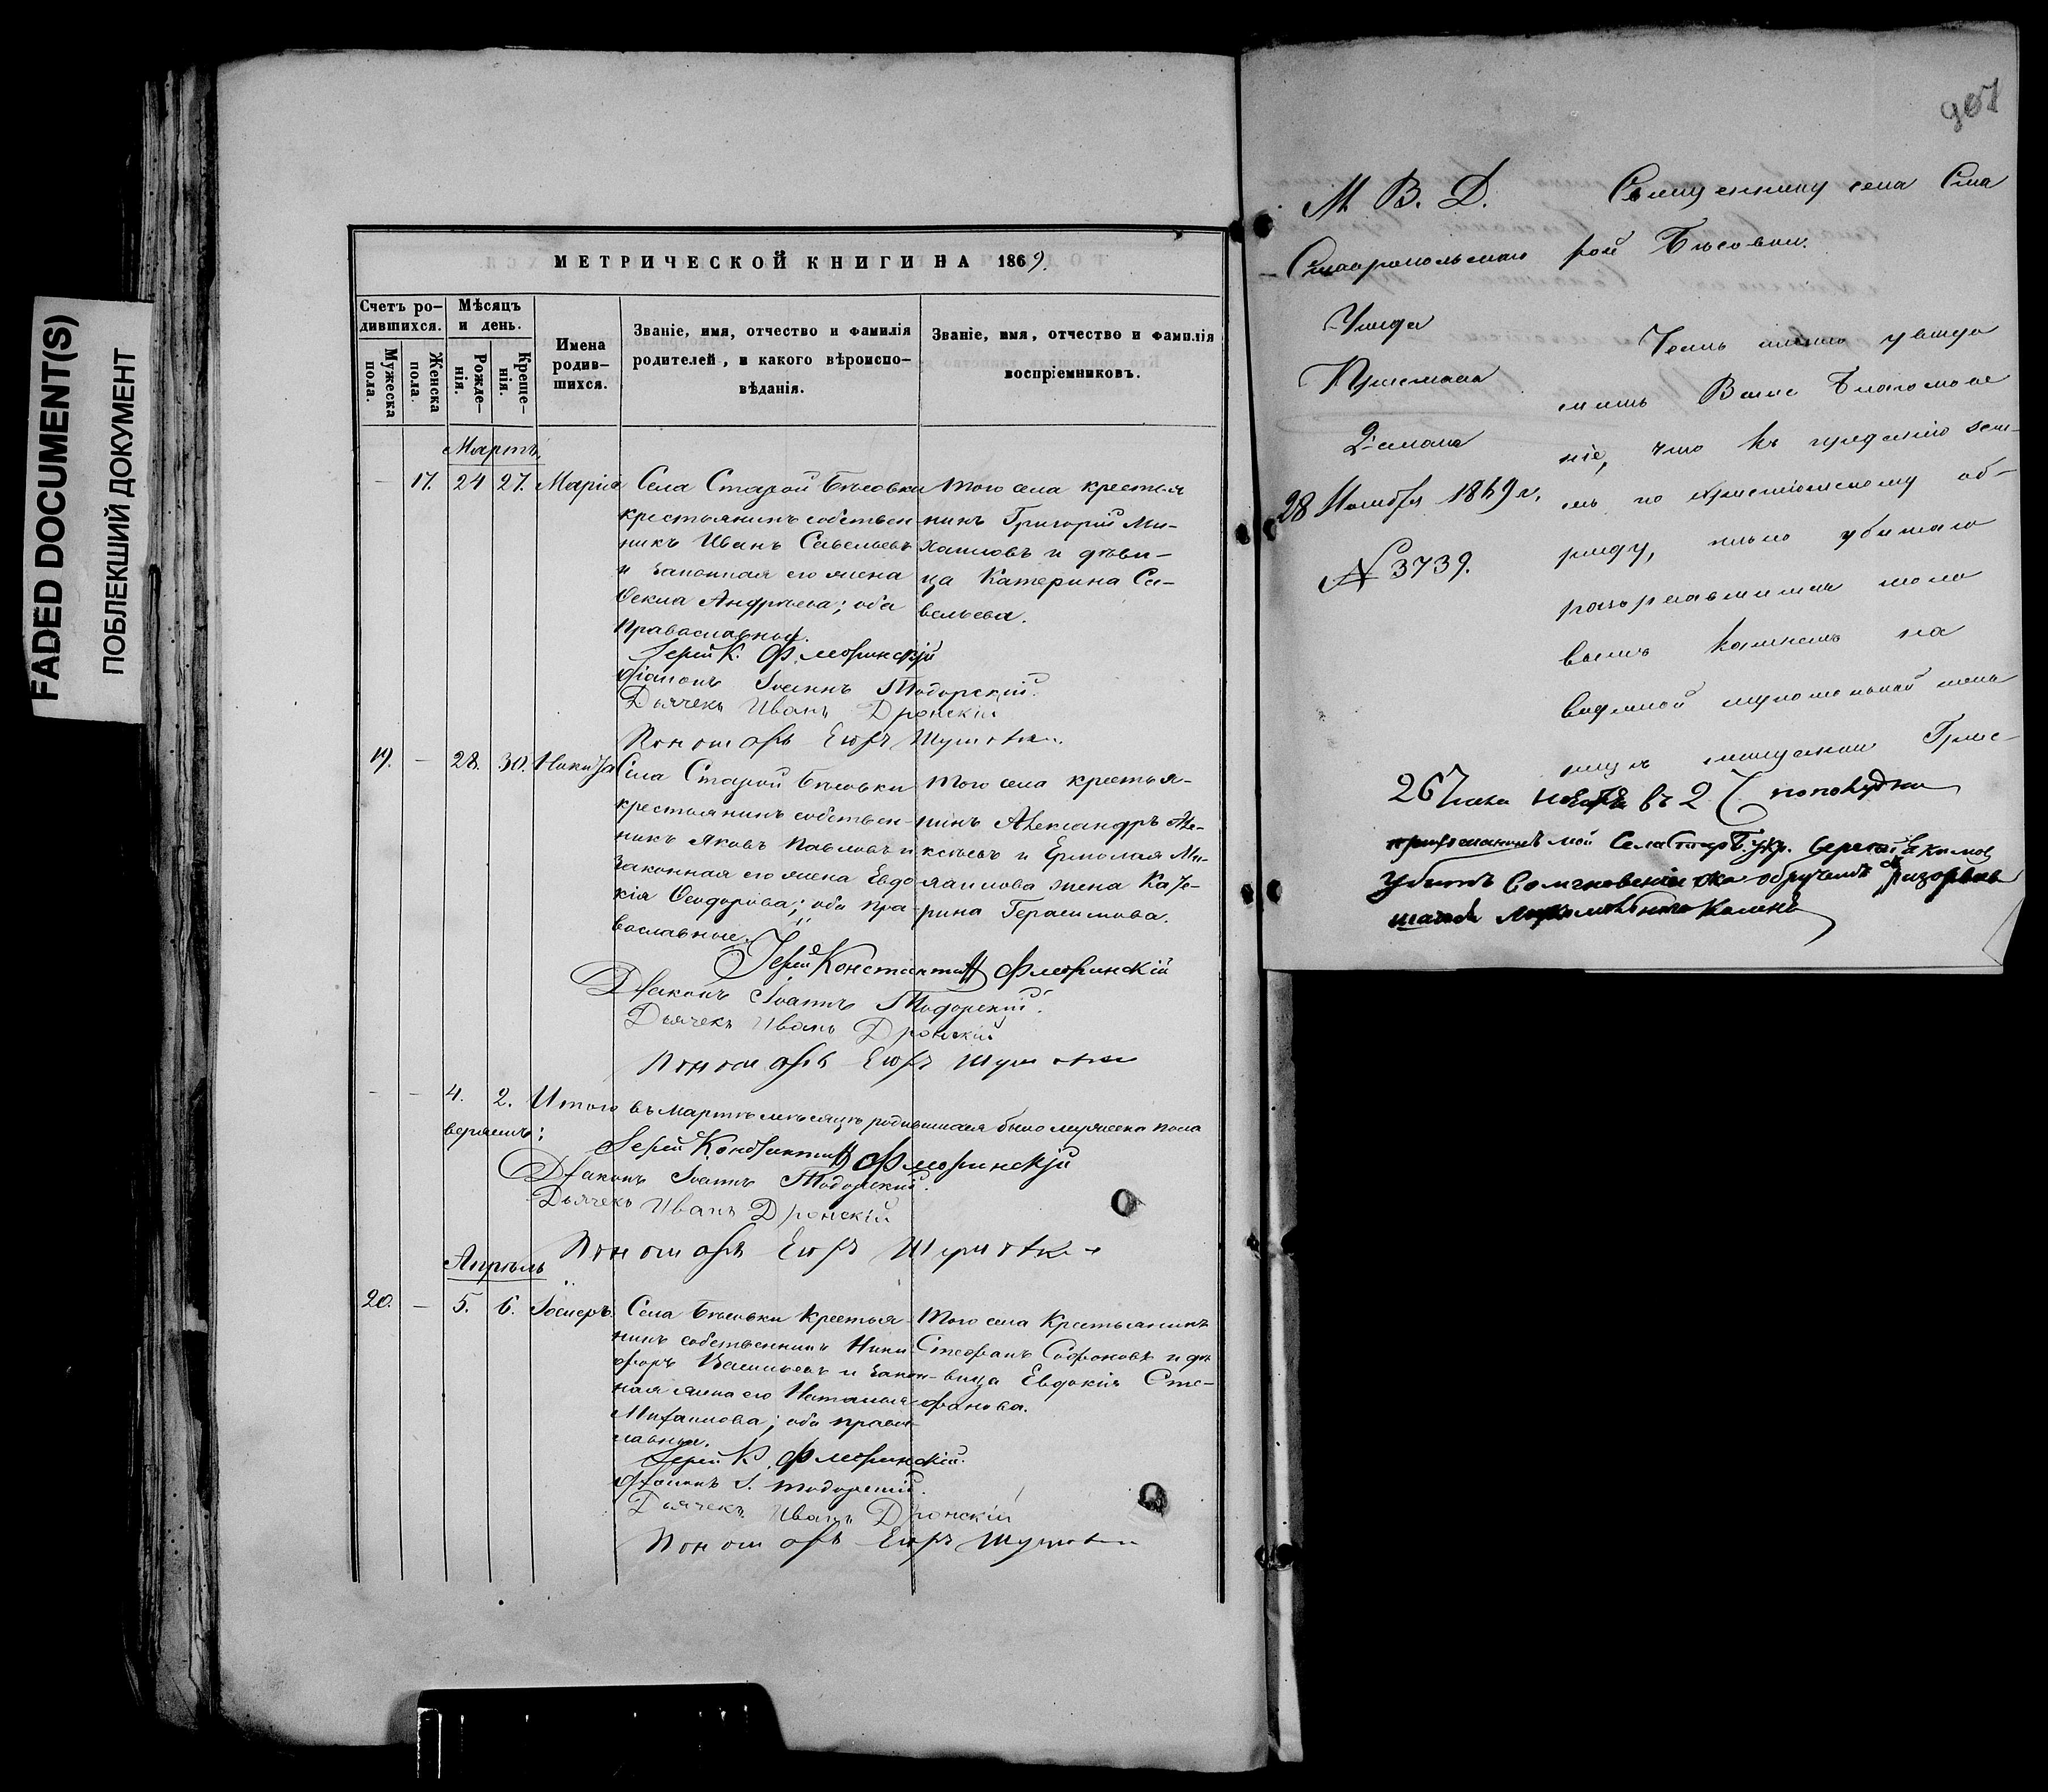 FADED DOCUMENT(S)
ПОБЛЕКШИЙ ДОКУМЕНТ
МЕТРИЧЕСКОЙ КНИГИ НА 1869.
Счетъ родившихся.
Мужеска пола.
Женска пола
Мѣсяцъ и день.
Рождения.
Крещенія.
Имена родившихся.
Званіе, имя, отчество и фамилія
родителей, и какого вѣроиспо-
вѣданія.
Званіе, имя, отчество и фамилія
воспріемниковъ.
Мартъ.
- 17. 24 27. Марія
Села Старой Бѣсовки
крестьянинъ собствен
никъ Иванъ Савельевъ
и законная его жена
Ѳекла Андреева; оба
православные.
того села крестья
нинъ Григорій Ми-
хаиловъ и дѣви-
ца Катерина Са-
вельева.
Іерей К. Флоринскій
Діаконъ Іоаннъ Тодорскій.
Дьячекъ Иванъ Дронскій
Пономарь Егоръ
19. - 28. 30. Никита
Села Старой Бѣсовки
крестьянинъ собствен-
никъ Яковъ Павловъ и
законная его жена Евдо
кія Ѳеодорова; оба пра-
вославные.
того села крестья-
нинъ Александръ Але-
ксѣевъ и Ермолая Ми-
хаилова жена Кате-
рина Герасимова.
Іерей Константинъ Флоринскій
Діаконъ Іоаннъ Тодорскій.
Дьячекъ Иванъ Дронскій
Пономарь Егоръ
- - 4. 2. Итого въ мартѣ мѣсяцѣ родившихся было мужеска пола
вѣряемъ:
Іерей Константинъ Флоринскій
Діаконъ Іоаннъ Тодорскій.
Дьячекъ Иванъ Дронскій
Пономарь Егоръ
Апрѣль
20. - 5. 6. Іосифъ.
Села Бѣсовки крестья
нинъ собственникъ Ники
форъ Васильевъ и закон-
ная жена его Наталья
Михаилова; оба право
славные.
Того села Крестьянинъ
Стефанъ Софоновъ и дѣ
вица Евдокія Сте-
фанова.
Іерей К. Флоринскій.
Діаконъ І. Тодорскій.
Дьячекъ Иванъ Дронскій
Пономарь Егоръ
907
М. В. Д.
Ставропольскаго
Уѣзда
Пристава
2 стана
28 Ноября 1869 г.
№ 3739.
Священнику села Ста
рой Бѣсовки.
Честь имѣю увѣдо
мить Ваше Благослове
ніе, что къ преданію зем-
лѣ по христіанскому об-
ряду, тѣло убитаго
разорвавшимся жерно
вымъ камнемъ на
водяной мукомольной мель
ницѣ
26 Числа ноября въ 2 пополудни
мой Села Стар. Б. Сергей Екимов
Убитъ обручемъ разорвав
шагося Камень